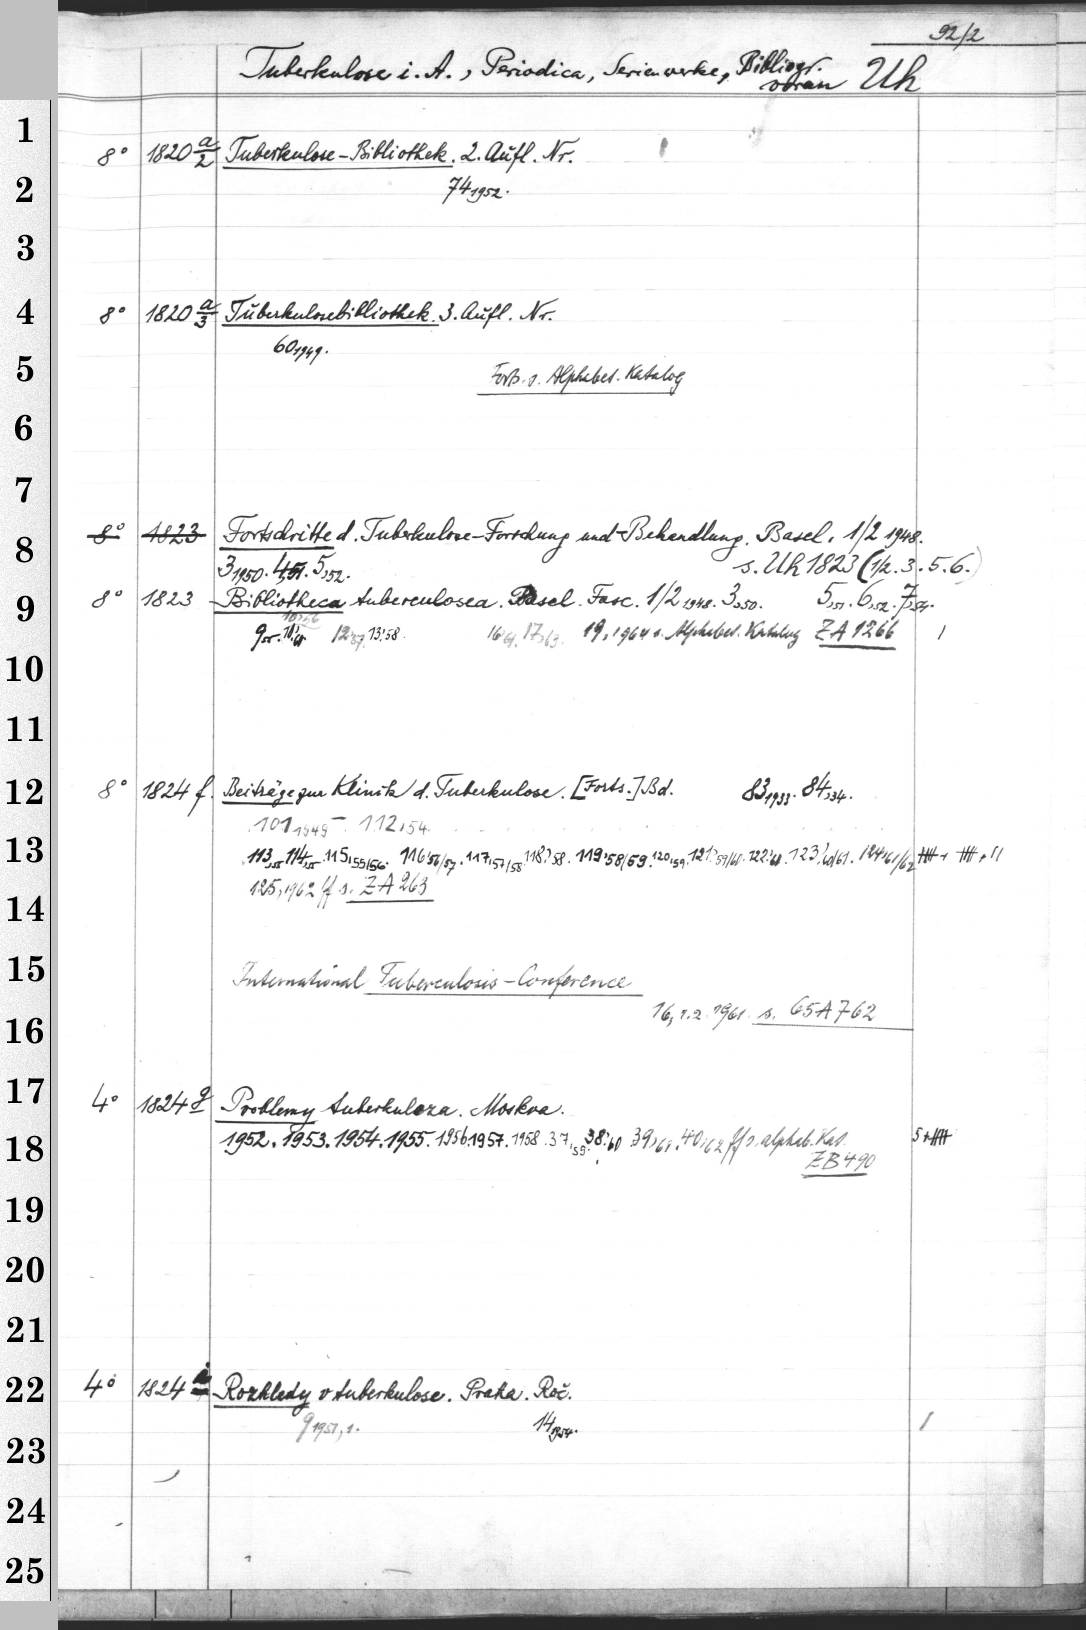 92/2
Tuberkulose i. A., Periodica, Serienwerke, Bibliogr. voran Uh
1
8° 1820 a/2 Tuberkulose-Bibliothek. 2. Aufl. Nr.
2
74 1952.
3
4
8° 1820 a/3 Tuberkulosebibliothek. 3. Aufl. Nr.
60 1949.
5
Forts. s. Alphabet. Katalog
6
7
8° 1823 Fortschritte d. Tuberkulose-Forschung und -Behandlung. Basel. 1/2 1948.
8
3 1950. 4,51. 5,52. s. Uh 1823 (1/2. 3. 5. 6.)
9
8° 1823 Bibliotheca tuberculosea. Basel. Fasc. 1/2 1948. 3,50. 5,51. 6,52. 7,54.
9,55. 12,57. 13,58. 16,61. 17,63. 19,1964 s. Alphabet. Katalog ZA 1266 |
10
11
12
8° 1824 f. Beiträge zur Klinik d. Tuberkulose. [Forts.] Bd. 83 1933. 84,34.
101 1949 - 112,54.
13
113,55 114,55 115,55/56. 116,56/57. 117,57/58 118,58. 119,58/59. 120,59. 121,59/60. 122,60. 123,60/61. 124,61/62
125,1962 ff s. ZA 263
14
15
International Tuberculosis-Conference
16
16, 1.2. 1961. s. 65 A 762
17
4° 1824 g Problemy tuberkuleza. Moskva.
18
1952. 1953. 1954. 1955. 1956. 1957. 1958. 37,59. 38,60 39,61. 40,62 ff s. alphab. Kat.
ZB 490
19
20
21
22
4° 1824 i Rozhledy v tuberkulose. Praha. Roč.
9 1951,1. 14,1954. |
23
24
25